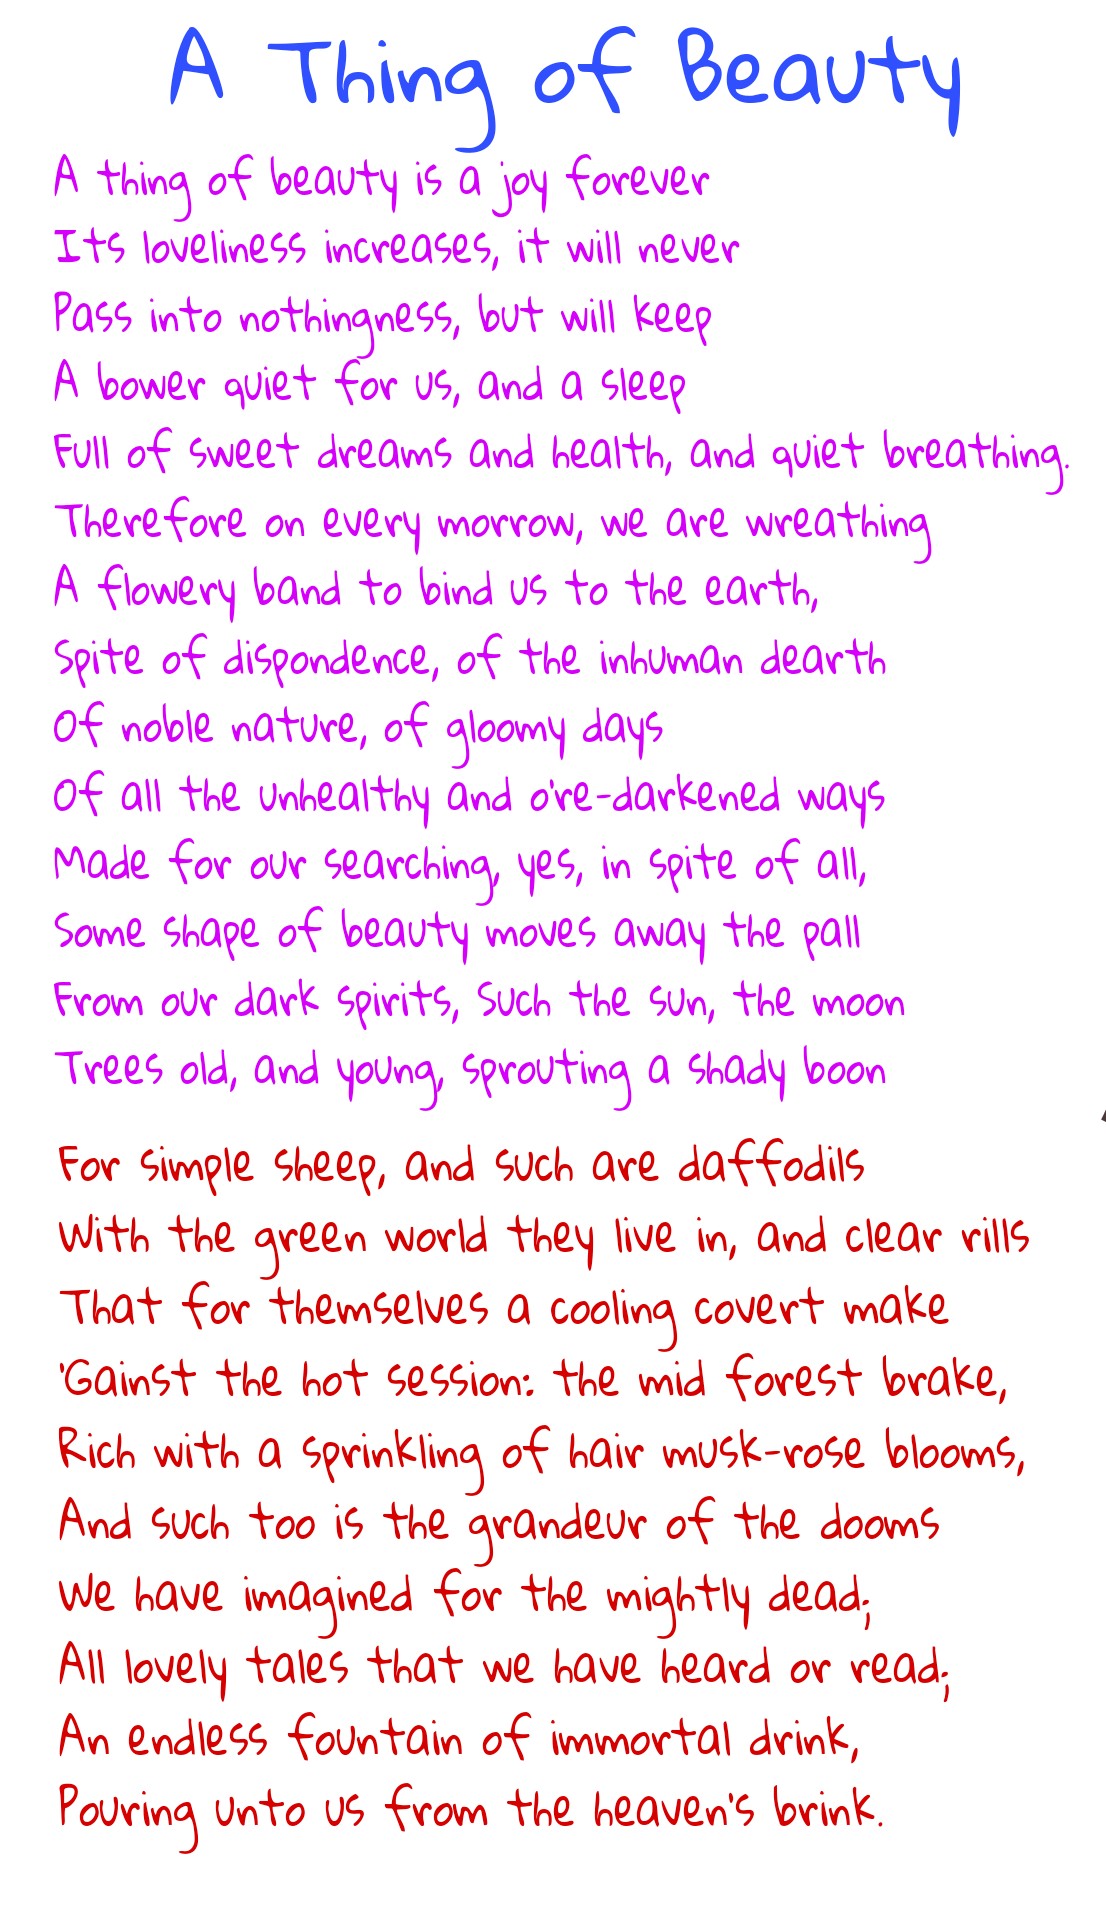 A Thing of Beauty
A thing of beauty is a joy forever
Its loveliness increases, it will never
Pass into nothingness, but will keep
A bower quiet for us, and a sleep
Full of sweet dreams and health, and quiet breathing.
Therefore on every morrow, we are wreathing
A flowery band to bind us to the earth,
Spite of dispondence, of the inhuman dearth
Of noble nature, of gloomy days
Of all the unhealthy and o're-darkened ways
Made for our searching, yes, in spite of all,
Some shape of beauty moves away the pall
From our dark spirits, Such the sun, the moon
Trees old, and young, sprouting a shady boon
For simple sheep, and such are daffodils
With the green world they live in, and clear rills
That for themselves a cooling covert make
'Gainst the hot session: the mid forest brake,
Rich with a sprinkling of hair musk-rose blooms,
And such too is the grandeur of the dooms
We have imagined for the mightly dead;
All lovely tales that we have heard or read;
An endless fountain of immortal drink,
Pouring unto us from the heaven's brink.